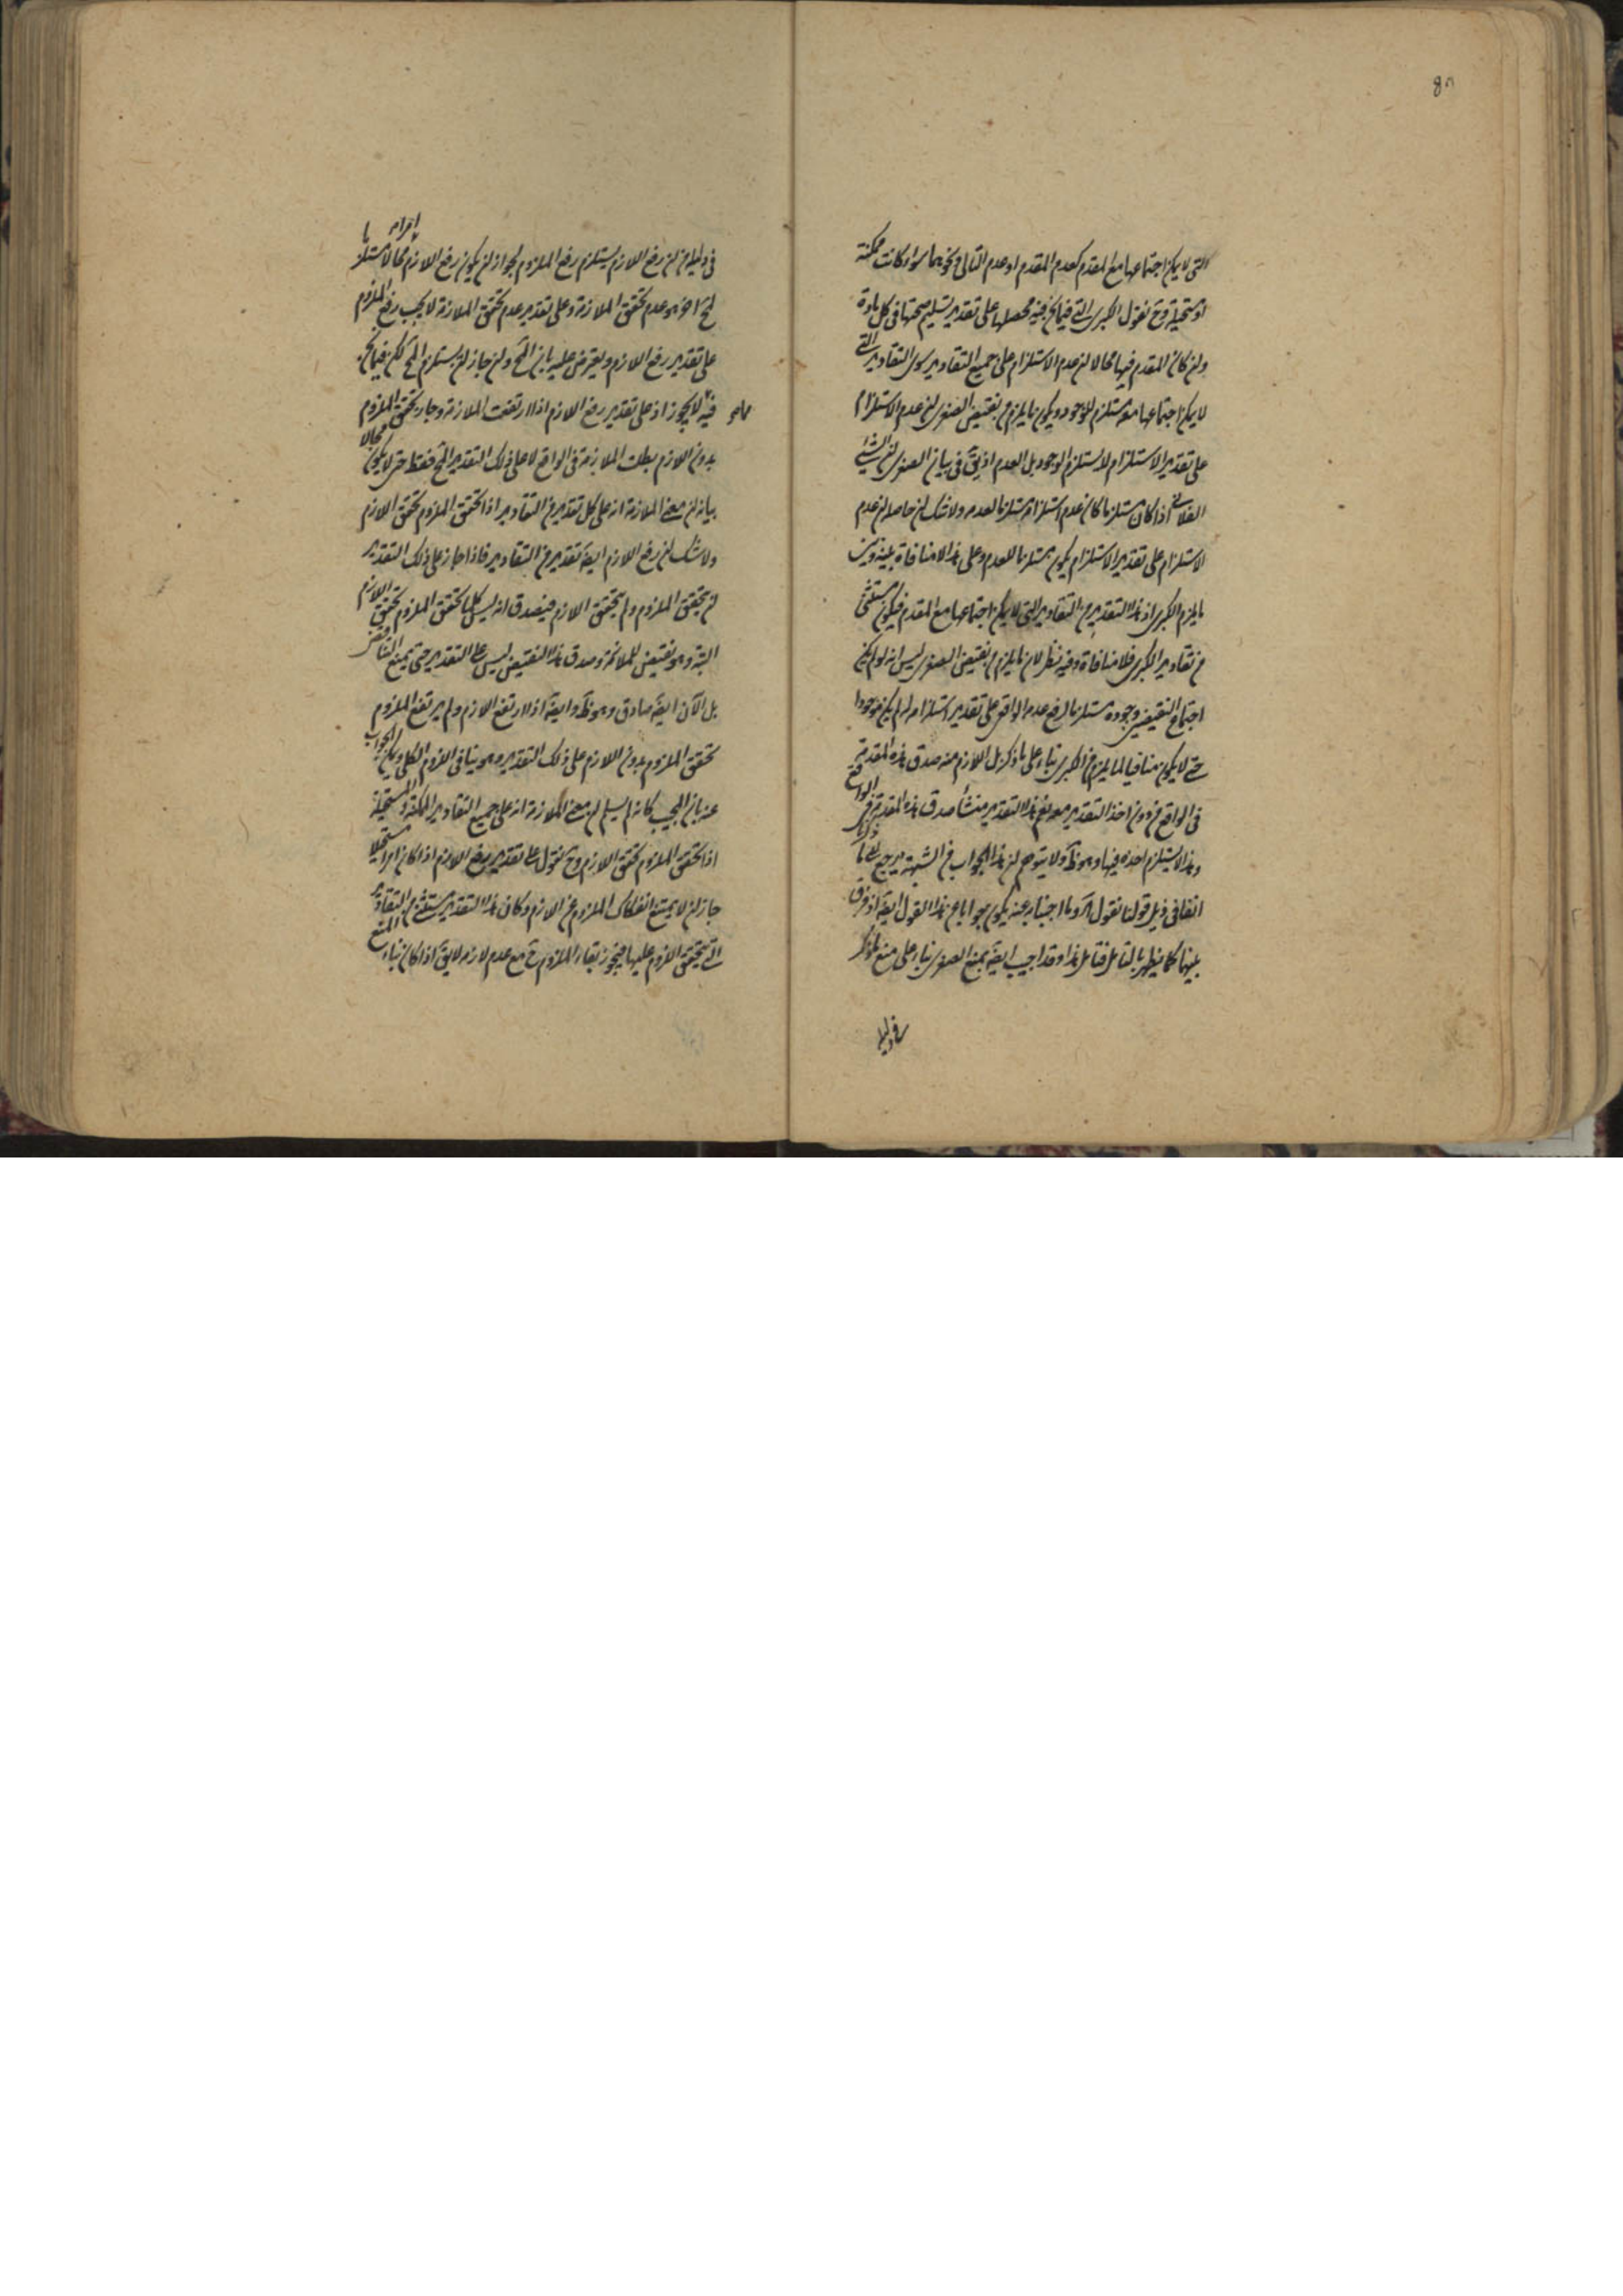 التى لا يمكن اجتماعها مع المقدم كعدم المقدم او عدم التالى ونحوهما سواء كانت ممكنة
او مستحيلة وح نقول الكبرى التى فيما نحن فيه محصلها على تقدير تسليم صحتها فى كل مادة
ولن كان المقدم فيها محالا لن عدم الاستلزام على جميع التقادير سوى التقادير التى
لا يمكن اجتماعها معه مستلزم للوجود ويكون ما يلزم من نقيض الصغرى لن عدم الاستلزام
على تقدير الاستلزام لا يستلزم الوجود بل العدم اذ يق فى بيان الصغرى لن الشئ
الفلانى اذا كان مستلزما كان عدم استلزامه مستلزما لعدمه ولا شك لن حاصله لن عدم
الاستلزام على تقدير الاستلزام يكون مستلزما للعدم وعلى هذا لا منافاة بينه وبين
ما يلزم الكبرى اذ هذا التقدير من التقادير التى لا يمكن اجتماعها مع المقدم فيكون مستثنى
من تقادير الكبرى فلا منافاة وفيه نظر لان ما يلزم من نقيض الصغرى ليس انه لو لم يكن
اجتماع النقيضين وجوده مستلزما لرفع عدمه الواقعى على تقدير استلزامه له لم يكن موجودا
حتى لا يكون منافيا لما يلزم من الكبرى بناء على ما ذكر بل اللازم منه صدق هذه المقدمة
فى الواقع من دون اخذ التقدير معه نعم هذا التقدير منشأ صدق هذه المقدمة فى الواقع
وهذا لا يستلزم اخذه فيها وهو ظ ولا يتوهم لن هذا الجواب عن الشبهة يرجع الى ما ذكرنا
انفا فى ذيل قولنا نقول وما اجبنا به عنه يكون جوابا عن هذا القول ايضا اذ فرق
بينهما كما يظهر بالتامل فتامل هذا وقد اجيب ايضا بمنع الصغرى بناء على منع ما ذكر
فى دليلها
فى دليلها من لن رفع اللازم يستلزم رفع الملزوم لجواز لن يكون رفع اللازم محالا مستلزما
لمح اخر هو عدم تحقق الملازمة وعلى تقدير عدم تحقق الملازمة لا يجب رفع الملزوم
على تقدير رفع اللازم ويعترض عليه بان المح ولن جاز لن يستلزم المح لكن فيما نحن
فيه لا يجوز اذ على تقدير رفع اللازم اذا ارتفعت الملازمة وجاز تحقق الملزوم
بدون اللازم بطلت الملازمة فى الواقع لا على ذلك التقدير المح فقط حتى لا يكون محالا
بيانه لن معنى الملازمة انه على كل تقدير من التقادير اذا تحقق الملزوم تحقق اللازم
ولا شك لن رفع اللازم ايضا تقدير من التقادير فاذا جاز على ذلك التقدير
لن يتحقق الملزوم ولم يتحقق اللازم فيصدق انه ليس كلما تحقق الملزوم تحقق اللازم
البتة وهو نقيض للملازمة وصدق هذا النقيض ليس على التقدير حتى يمنع التناقض
بل الآن ايضا صادق وهو ظ وايضا اذا ارتفع اللازم ولم يرتفع الملزوم
تحقق الملزوم بدون اللازم على ذلك التقدير وهو ينافى اللزوم الكلى ويمكن الجواب
عنه بان المجيب كانه لم يسلم لن معنى الملازمة انه على جميع التقادير الممكنة والمستحيلة
اذا تحقق الملزوم تحقق اللازم وح نقول على تقدير رفع اللازم اذا كان امرا مستحيلا
جاز لن لا يمتنع انفكاك الملزوم عن اللازم وكان هذا التقدير مستثنى من التقادير
التى يتحقق اللزوم عليها فيجوز بقاء الملزوم ح مع عدم لازمه لا يق اذا كان بناء المنع